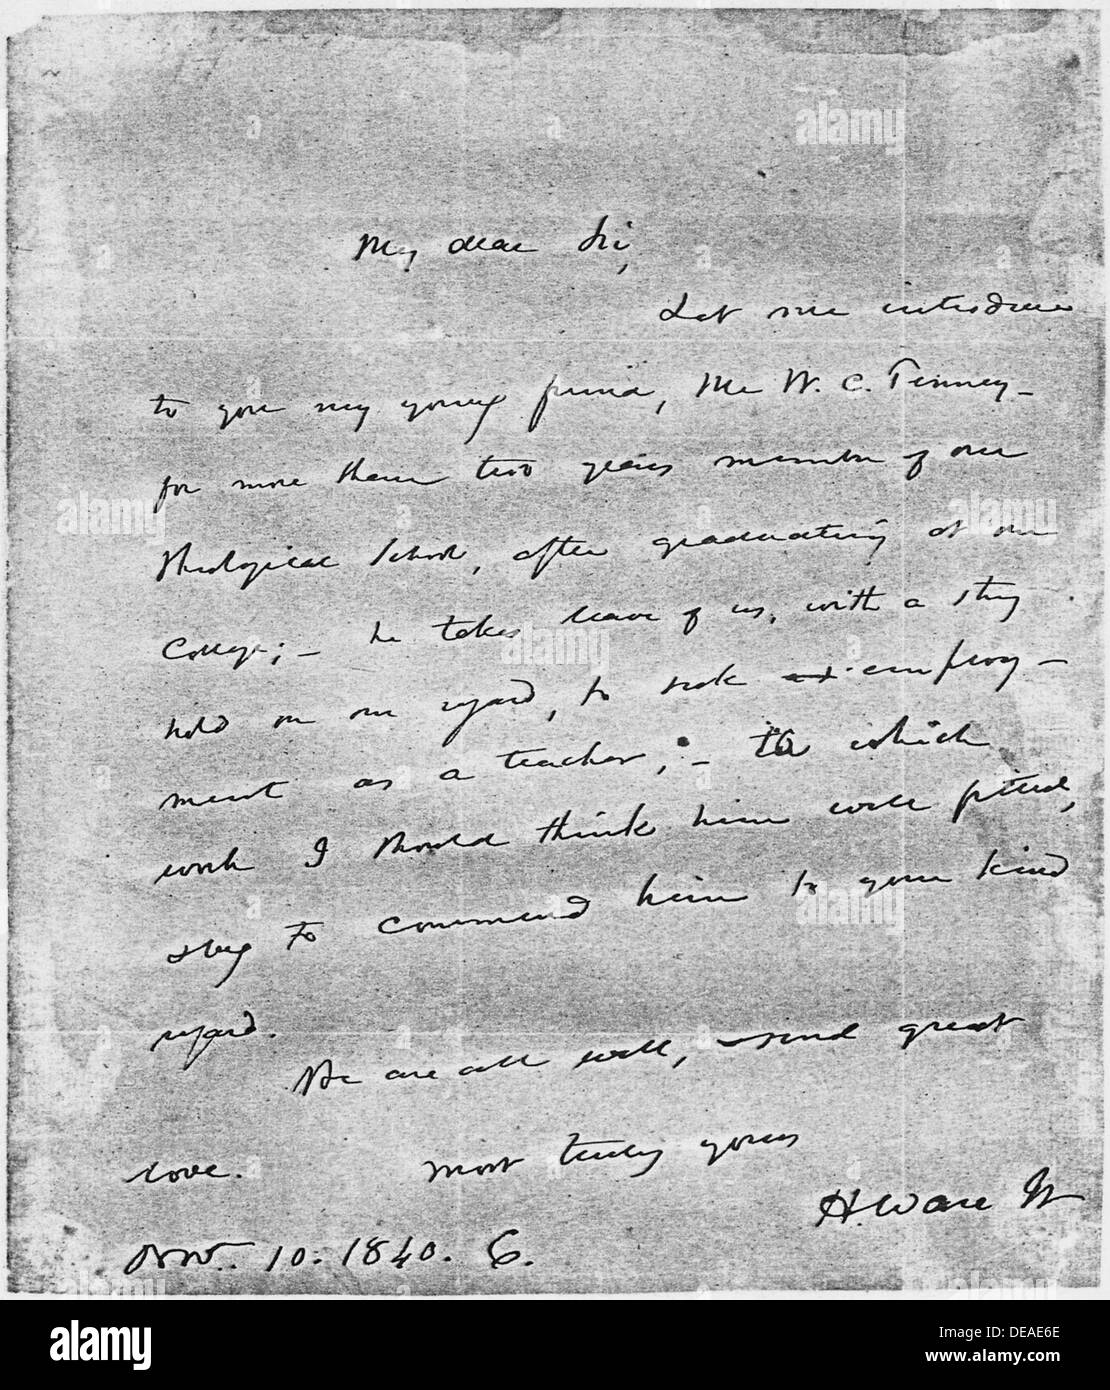 My dear Sir,
Let me introduce
to you my young friend, Mr W. C. Tenney—
for more than two years member of our
theological School, after graduating at our
College; — he takes leave of us, with a strong
hold on our regard, to seek employ—
ment as a teacher; — to which
work I should think him well fitted,
& beg to commend him to your kind
regard.
We are all well, & send great
love. Most truly yours
H. Ware Jr
Nov. 10. 1840. C.
alamy
Image ID: DEAE6E
www.alamy.com